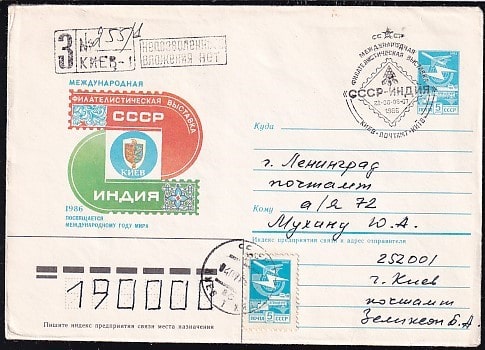 З № 255/1
КИЕВ-1
Недозволенных
вложений нет
МЕЖДУНАРОДНАЯ
ФИЛАТЕЛИСТИЧЕСКАЯ ВЫСТАВКА
СССР
КИЕВ
ИНДИЯ
1986
ПОСВЯЩАЕТСЯ
МЕЖДУНАРОДНОМУ ГОДУ МИРА
СССР
МЕЖДУНАРОДНАЯ
ФИЛАТЕЛИСТИЧЕСКАЯ ВЫСТАВКА
«СССР-ИНДИЯ»
1986
КИЕВ-ПОЧТАМТ-КИЇВ
5
Куда
г. Ленинград
почтамт
а/я 72
Кому
Мухину Ю.А.
Индекс предприятия связи и адрес отправителя
252001
г. Киев
почтамт
Зеликсон Б.А.
190000
Пишите индекс предприятия связи места назначения
5
ПОЧТА СССР